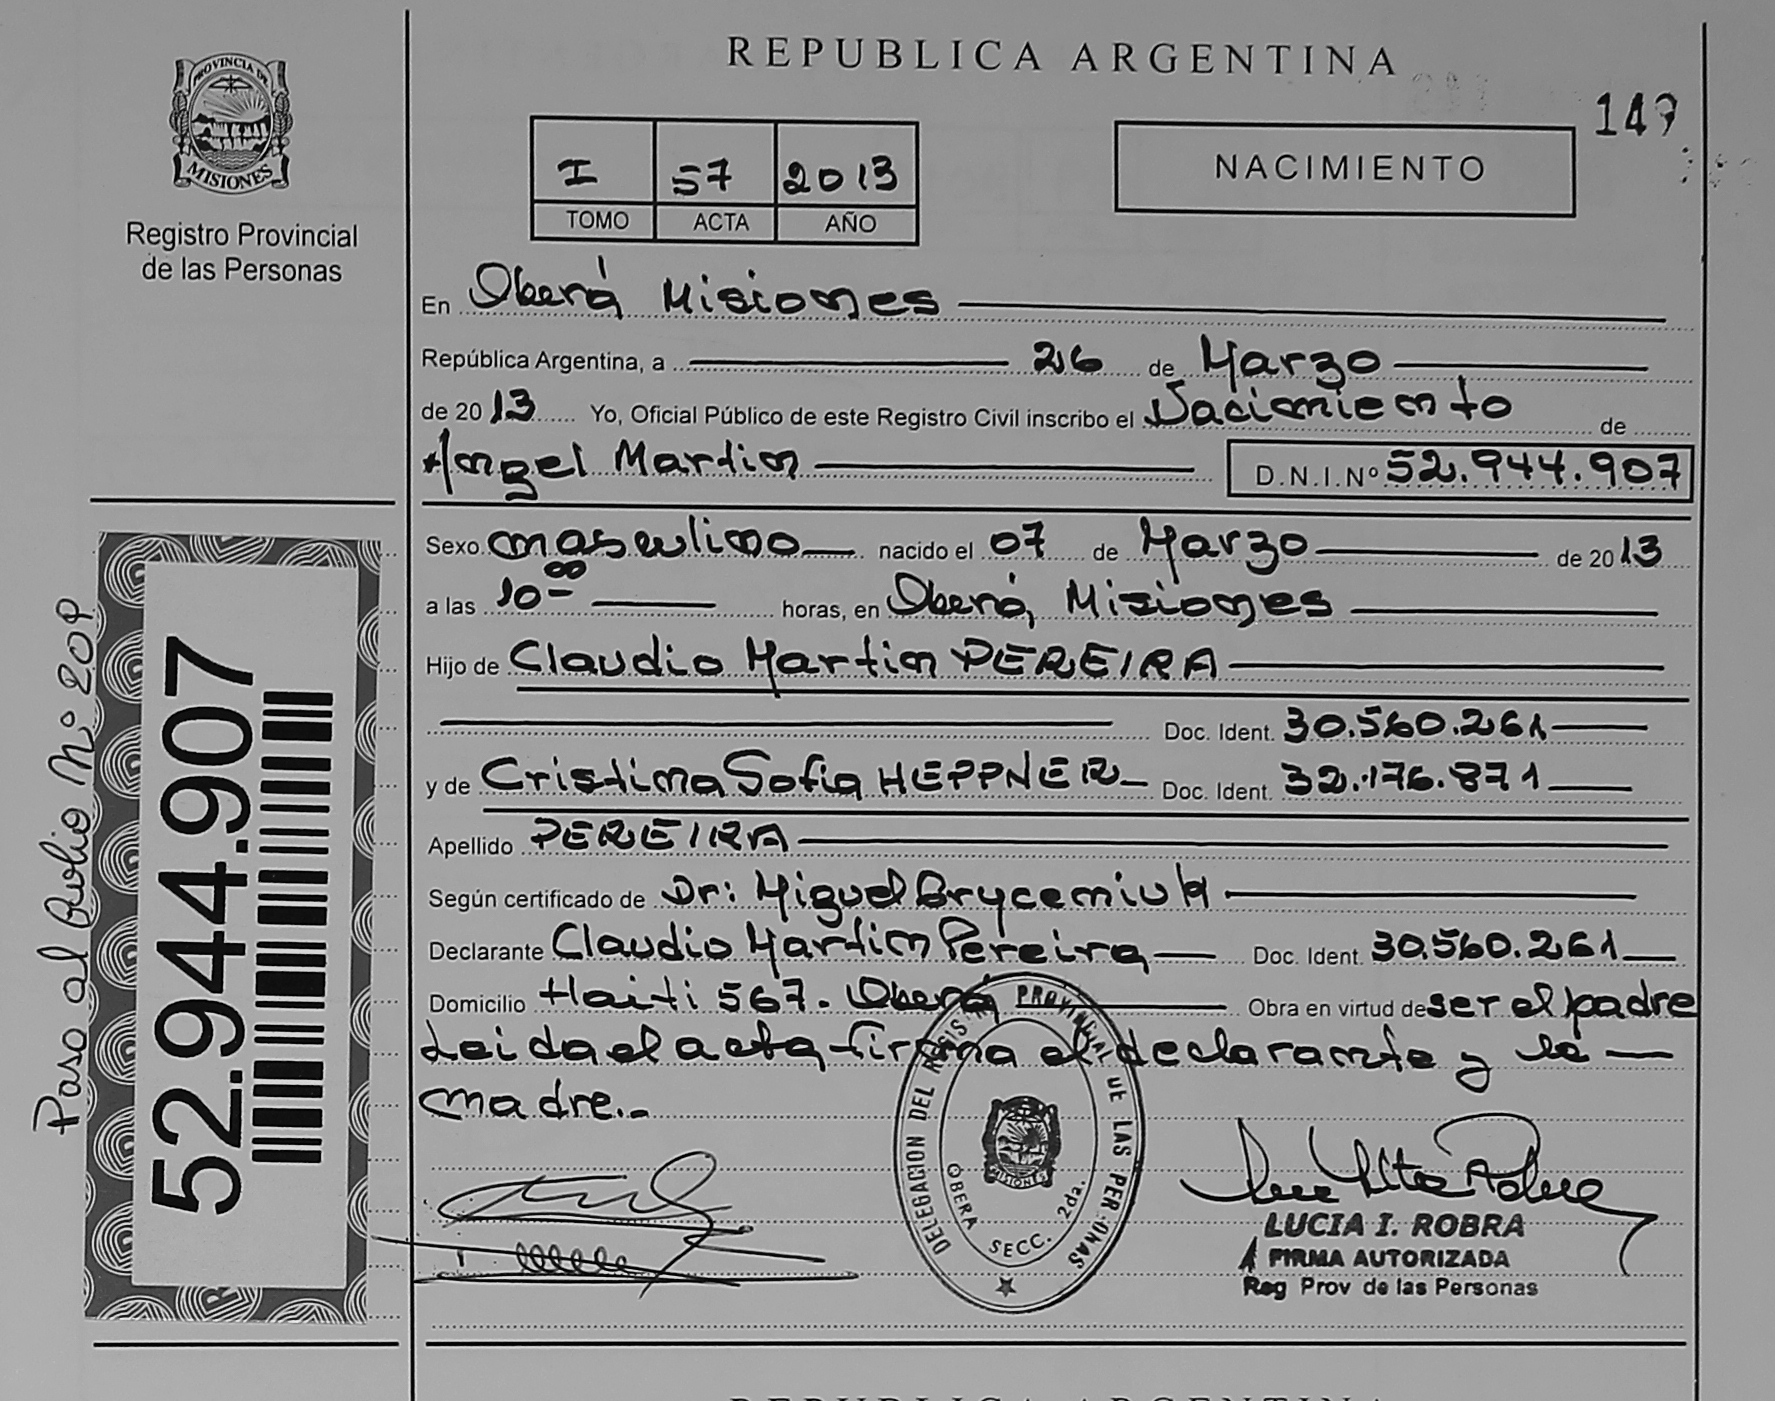 PROVINCIA DE
MISIONES
Registro Provincial
de las Personas
REPUBLICA ARGENTINA
149
I 57 2013
TOMO ACTA AÑO
NACIMIENTO
En Oberá Misiones
República Argentina, a 26 de Marzo
de 2013 Yo, Oficial Público de este Registro Civil inscribo el Nacimiento de
Angel Martin D.N.I.Nº 52.944.907
Sexo masculino nacido el 07 de Marzo de 2013
a las 10-00 horas, en Oberá, Misiones
Hijo de Claudio Martin PEREIRA
Doc. Ident. 30.560.261
y de Cristina Sofia HEPPNER Doc. Ident. 32.176.871
Apellido PEREIRA
Según certificado de Dr: Miguel
Declarante Claudio Martin Pereira Doc. Ident. 30.560.261
Domicilio Haiti 567. Oberá Obra en virtud de ser el padre
Leida el acta firma el declarante y la
madre.-
DELEGACION DEL REGIST PROVINCIAL DE LAS PERSONAS
OBERA SECC. 2da.
MISIONES
LUCIA I. ROBRA
FIRMA AUTORIZADA
Reg Prov de las Personas
52.944.907
Paso al folio Nº 209
REPUBLICA ARGENTINA